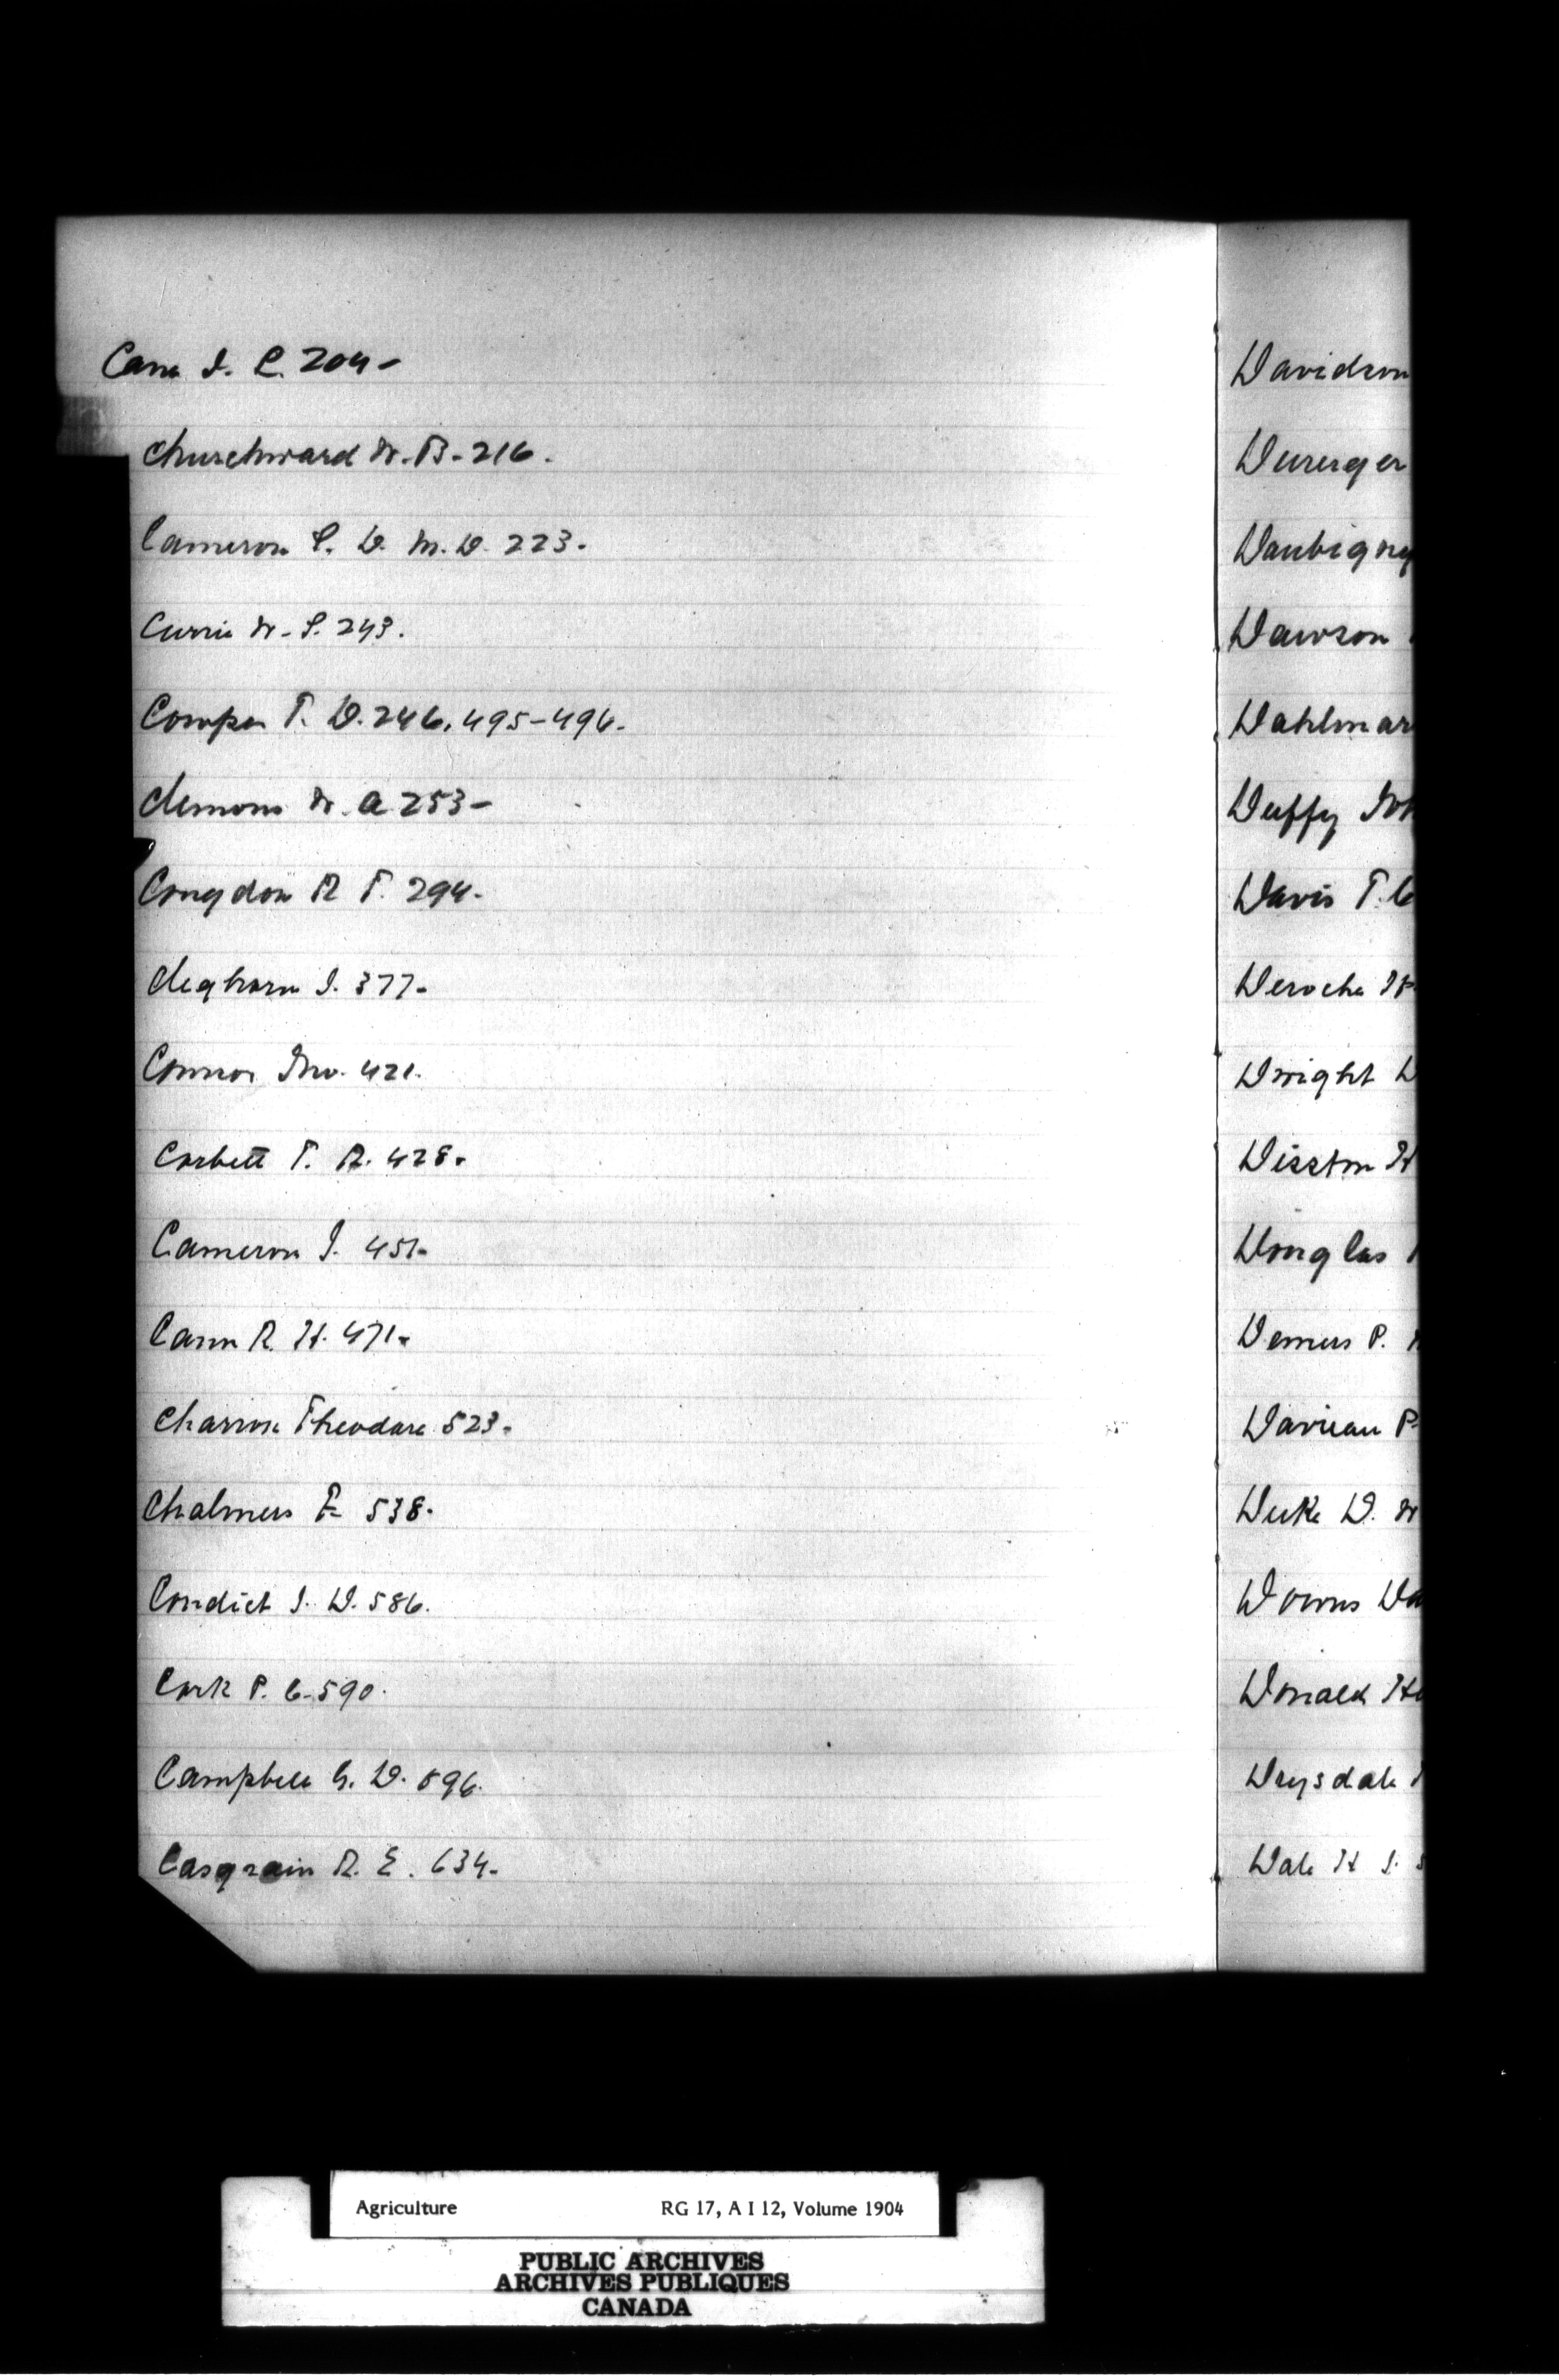 Cann J. L. 204-
Churchward W. B- 216.
Cameron S. D. M. D. 223.
Currie W. S. 243.
Cowper T. D. 246, 495-496.
Clemons W. A 253-
Congdon R T. 294.
Cleghorn J. 377.
Connor Jno. 421.
Corbett T. R. 428.
Cameron J. 451.
Cann R. H. 471.
Charron Theodore 523.
Chalmers F 538.
Condict J. D. 586.
Cork P. C. 590.
Campbell G. D. 596.
Casgrain R. E. 634.
Davidson
Daubigny
Dawson
Dahlmar
Duffy
Davis T. C
Deroche
Dwight D
Disston H
Douglas
Demers P.
Daviau P
Duke D. W
Downs Da
Donald
Drysdale
Dale H J.
Agriculture RG 17, A I 12, Volume 1904
PUBLIC ARCHIVES
ARCHIVES PUBLIQUES
CANADA